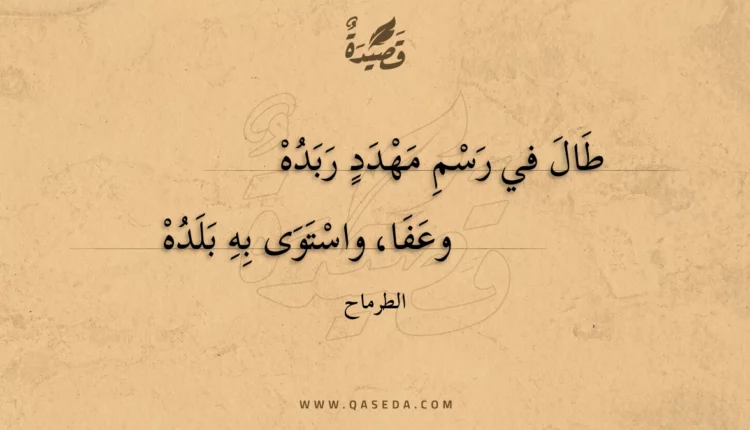 قَصِيْدَةٌ
طَالَ في رَسْمِ مَهْدَدٍ رَبَدُهْ
وعَفَا، واسْتَوَى بِهِ بَلَدُهْ
الطرماح
WWW.QASEDA.COM